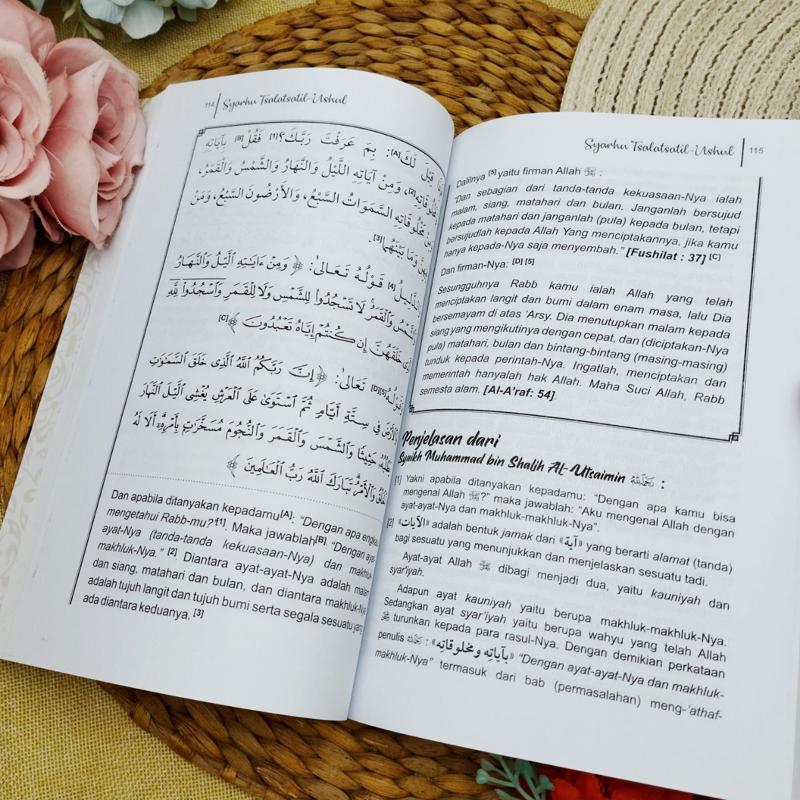 114 Syarhu Tsalatsatil-Ushul
قِيلَ لَكَ[A]: بِمَ عَرَفْتَ رَبَّكَ؟[1] فَقُلْ[B] بِآيَاتِهِ
وَمِنْ آيَاتِهِ اللَّيْلُ وَالنَّهَارُ وَالشَّمْسُ وَالْقَمَرُ،
مَخْلُوقَاتِهِ السَّمَوَاتُ السَّبْعُ، وَالأَرْضُونَ السَّبْعُ، وَمَنْ
وَمَا بَيْنَهُمَا[3]
[4] قَوْلُهُ تَعَالَى: ﴿ وَمِنْ ءَايَـٰتِهِ الَّيْلُ وَالنَّهَارُ
وَالشَّمْسُ وَالْقَمَرُ لَا تَسْجُدُوا۟ لِلشَّمْسِ وَلَا لِلْقَمَرِ وَاسْجُدُوا۟ لِلَّهِ
خَلَقَهُنَّ إِن كُنتُمْ إِيَّاهُ تَعْبُدُونَ ﴾[C]
[D][5] تَعَالَى: ﴿ إِنَّ رَبَّكُمُ اللَّهُ الَّذِى خَلَقَ السَّمَـٰوَٰتِ
وَالْأَرْضَ فِى سِتَّةِ أَيَّامٍ ثُمَّ اسْتَوَىٰ عَلَى الْعَرْشِ يُغْشِى الَّيْلَ النَّهَارَ
يَطْلُبُهُ حَثِيثًا وَالشَّمْسَ وَالْقَمَرَ وَالنُّجُومَ مُسَخَّرَٰتٍ بِأَمْرِهِ أَلَا لَهُ
الْخَلْقُ وَالْأَمْرُ تَبَارَكَ اللَّهُ رَبُّ الْعَـٰلَمِينَ ﴾
Dan apabila ditanyakan kepadamu[A]: "Dengan apa engkau
mengetahui Rabb-mu?"[1]. Maka jawablah[B] "Dengan ayat-
ayat-Nya (tanda-tanda kekuasaan-Nya) dan makhluk-
makhluk-Nya." [2]. Diantara ayat-ayat-Nya adalah malam
dan siang, matahari dan bulan, dan diantara makhluk-Nya
adalah tujuh langit dan tujuh bumi serta segala sesuatu yang
ada diantara keduanya. [3]
Syarhu Tsalatsatil-Ushul 115
Dalilnya [5] yaitu firman Allah ﷻ :
"Dan sebagian dari tanda-tanda kekuasaan-Nya ialah
malam, siang, matahari dan bulan. Janganlah bersujud
kepada matahari dan janganlah (pula) kepada bulan, tetapi
bersujudlah kepada Allah Yang menciptakannya, jika kamu
hanya kepada-Nya saja menyembah." [Fushilat : 37] [C]
Dan firman-Nya: [D] [5]
Sesungguhnya Rabb kamu ialah Allah yang telah
menciptakan langit dan bumi dalam enam masa, lalu Dia
bersemayam di atas 'Arsy. Dia menutupkan malam kepada
siang yang mengikutinya dengan cepat, dan (diciptakan-Nya
pula) matahari, bulan dan bintang-bintang (masing-masing)
tunduk kepada perintah-Nya. Ingatlah, menciptakan dan
memerintah hanyalah hak Allah. Maha Suci Allah, Rabb
semesta alam. [Al-A'raf: 54].
Penjelasan dari
Syaikh Muhammad bin Shalih Al-Utsaimin :
[1] Yakni apabila ditanyakan kepadamu: "Dengan apa kamu bisa
mengenal Allah ﷻ?" maka jawablah: "Aku mengenal Allah dengan
ayat-ayat-Nya dan makhluk-makhluk-Nya".
[2] «الآيَات» adalah bentuk jamak dari «آية» yang berarti alamat (tanda)
bagi sesuatu yang menunjukkan dan menjelaskan sesuatu tadi.
Ayat-ayat Allah ﷻ dibagi menjadi dua, yaitu kauniyah dan
syar'iyah.
Adapun ayat kauniyah yaitu berupa makhluk-makhluk-Nya.
Sedangkan ayat syar'iyah yaitu berupa wahyu yang telah Allah
ﷻ turunkan kepada para rasul-Nya. Dengan demikian perkataan
penulis : «بآياته ومخلوقاته» "Dengan ayat-ayat-Nya dan makhluk-
makhluk-Nya" termasuk dari bab (permasalahan) meng-'athaf-